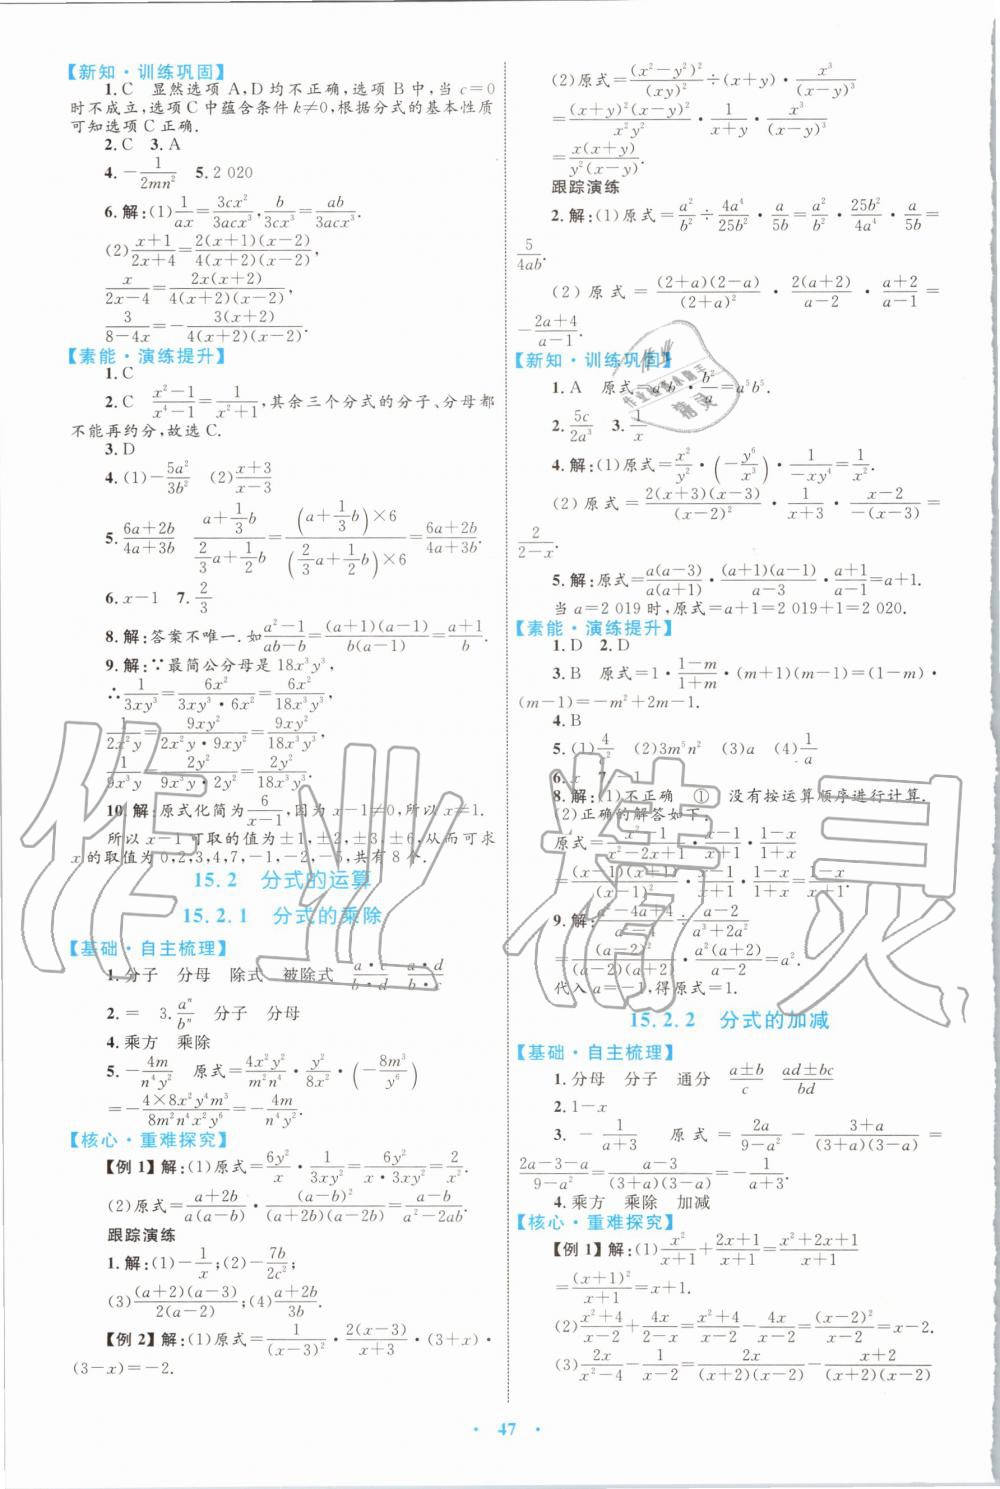 【新知·训练巩固】
1.C 显然选项A,D均不正确,选项B中,当c=0
时不成立,选项C中蕴含条件k≠0,根据分式的基本性质
可知选项C正确.
2.C 3.A
4.-1/(2mn²) 5.2 020
6.解:(1)1/(ax)=3cx²/(3acx³),b/(3cx³)=ab/(3acx³).
(2)(x+1)/(2x+4)=2(x+1)(x-2)/(4(x+2)(x-2)),
x/(2x-4)=2x(x+2)/(4(x+2)(x-2)),
3/(8-4x)=-3(x+2)/(4(x+2)(x-2)).
【素能·演练提升】
1.C
2.C (x²-1)/(x⁴-1)=1/(x²+1),其余三个分式的分子、分母都
不能再约分,故选C.
3.D
4.(1)-5a²/(3b²) (2)(x+3)/(x-3)
5.(6a+2b)/(4a+3b) (a+(1/3)b)/((2/3)a+(1/2)b)=((a+(1/3)b)×6)/(((2/3)a+(1/2)b)×6)=(6a+2b)/(4a+3b).
6.x-1 7.2/3
8.解:答案不唯一.如(a²-1)/(ab-b)=(a+1)(a-1)/(b(a-1))=(a+1)/b.
9.解:∵最简公分母是18x³y³,
∴1/(3xy³)=6x²/(3xy³·6x²)=6x²/(18x³y³),
1/(2x²y)=9xy²/(2x²y·9xy²)=9xy²/(18x³y³),
1/(9x³y)=2y²/(9x³y·2y²)=2y²/(18x³y³).
10.解:原式化简为6/(x-1),因为x-1≠0,所以x≠1.
所以x-1可取的值为±1,±2,±3,±6,从而可求
x的取值为0,2,3,4,7,-1,-2,-5,共有8个.
15.2 分式的运算
15.2.1 分式的乘除
【基础·自主梳理】
1.分子 分母 除式 被除式 (a·c)/(b·d) (a·d)/(b·c)
2.= 3.aⁿ/bⁿ 分子 分母
4.乘方 乘除
5.-4m/(n⁴y²) 原式=4x²y²/(m²n⁴)·y²/(8x²)·(-8m³/y⁶)
=-4×8x²y⁴m³/(8m²n⁴x²y⁶)=-4m/(n⁴y²).
【核心·重难探究】
【例1】解:(1)原式=6y²/x·1/(3xy²)=6y²/(x·3xy²)=2/x².
(2)原式=(a+2b)/(a(a-b))·(a-b)²/((a+2b)(a-2b))=(a-b)/(a²-2ab).
跟踪演练
1.解:(1)-1/x;(2)-7b/(2c²);
(3)(a+2)(a-3)/(2(a-2));(4)(a+2b)/(3b).
【例2】解:(1)原式=1/(x-3)²·2(x-3)/(x+3)·(3+x)·
(3-x)=-2.
(2)原式=(x²-y²)²/(xy)²÷(x+y)·x³/(x-y)³
=(x+y)²(x-y)²/(x²y²)·1/(x+y)·x³/(x-y)³
=x(x+y)/(y²(x-y)).
跟踪演练
2.解:(1)原式=a²/b²÷4a⁴/(25b²)·a/(5b)=a²/b²·25b²/(4a⁴)·a/(5b)=
5/(4ab).
(2)原式=(2+a)(2-a)/(2+a)²·2(a+2)/(a-2)·(a+2)/(a-1)=
-(2a+4)/(a-1).
【新知·训练巩固】
2.5c/(2a³) 3.1/x
4.解:(1)原式=x²/y²·(-y⁶/x³)·1/(-xy⁴)=1/x².
(2)原式=2(x+3)(x-3)/(x-2)²·1/(x+3)·(x-2)/(-(x-3))=
2/(2-x).
5.解:原式=a(a-3)/(a(a+1))·(a+1)(a-1)/(a-3)·(a+1)/(a-1)=a+1.
当a=2 019时,原式=a+1=2 019+1=2 020.
【素能·演练提升】
1.D 2.D
3.B 原式=1·(1-m)/(1+m)·(m+1)(m-1)=(1-m)·
(m-1)=-m²+2m-1.
4.B
(2)3m⁵n² (3)a (4)1/a
6.x 7.-1
8.解:(1)不正确 ① 没有按运算顺序进行计算.
(2)正确的解答如下:
原式=(x²-1)/(x²-2x+1)·(x-1)/(x+1)·(1-x)/(1+x)
=(x+1)(x-1)/(x-1)²·(x-1)/(x+1)·(1-x)/(1+x)=(1-x)/(1+x).
代入a=-1,得原式=1.
15.2.2 分式的加减
【基础·自主梳理】
1.分母 分子 通分 (a±b)/c (ad±bc)/(bd)
2.1-x
3.-1/(a+3) 原式=2a/(9-a²)-(3+a)/((3+a)(3-a))=
(2a-3-a)/(9-a²)=(a-3)/((3+a)(3-a))=-1/(a+3).
4.乘方 乘除 加减
【核心·重难探究】
【例1】解:(1)x²/(x+1)+(2x+1)/(x+1)=(x²+2x+1)/(x+1)
=(x+1)²/(x+1)=x+1.
(2)(x²+4)/(x-2)+4x/(2-x)=(x²+4)/(x-2)-4x/(x-2)=(x-2)²/(x-2)=x-2.
(3)2x/(x²-4)-1/(x-2)=2x/((x+2)(x-2))-(x+2)/((x+2)(x-2))
· 47 ·
作业精灵